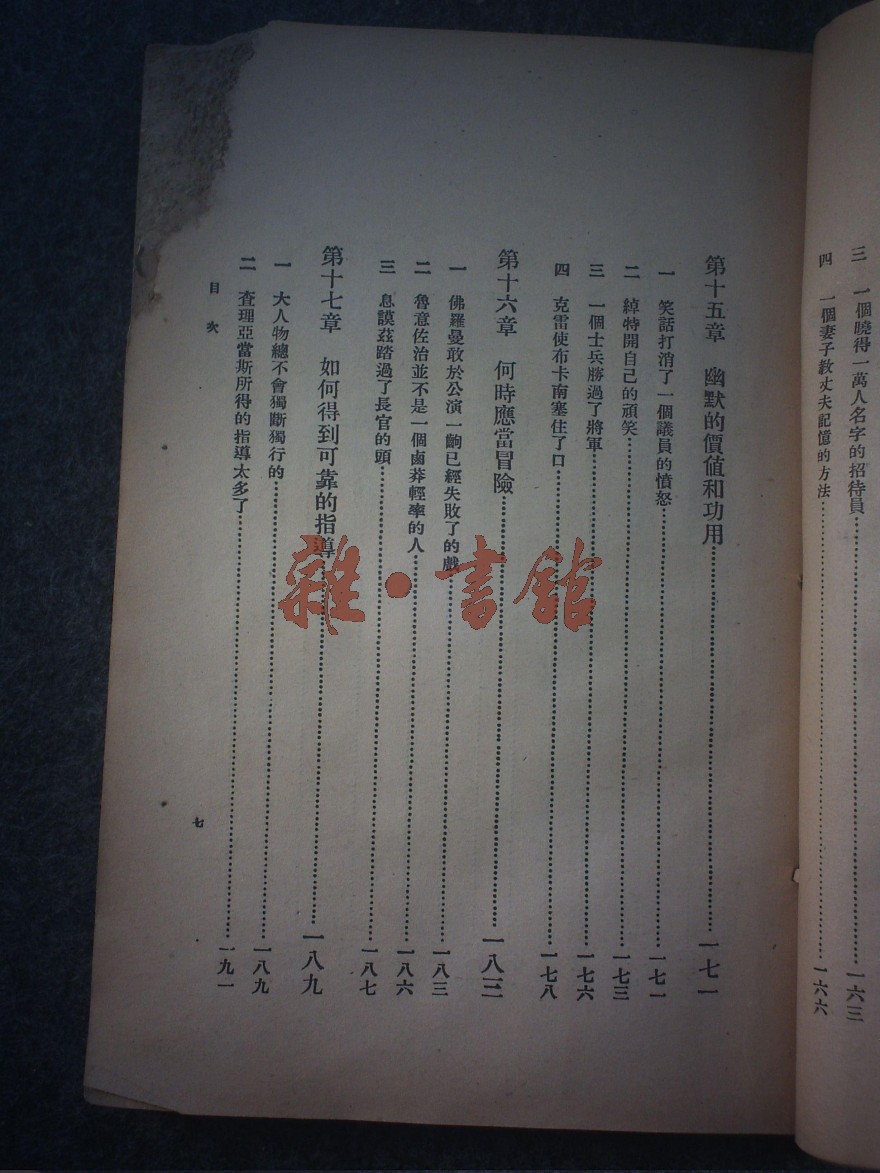 三　一個曉得一萬人名字的招待員……一六三
四　一個妻子教丈夫記憶的方法……一六六
第十五章　幽默的價值和功用……一七一
一　笑話打消了一個議員的憤怒……一七一
二　綽特開自己的頑笑……一七三
三　一個士兵勝過了將軍……一七六
四　克雷使布卡南塞住了口……一七八
第十六章　何時應當冒險……一八三
一　佛羅曼敢於公演一齣已經失敗了的戲……一八三
二　魯意佐治並不是一個鹵莽輕率的人……一八六
三　息謨茲踏過了長官的頭……一八七
第十七章　如何得到可靠的指導……一八九
一　大人物總不會獨斷獨行的……一八九
二　查理亞當斯所得的指導太多了……一九一
目次
七
雜·書館